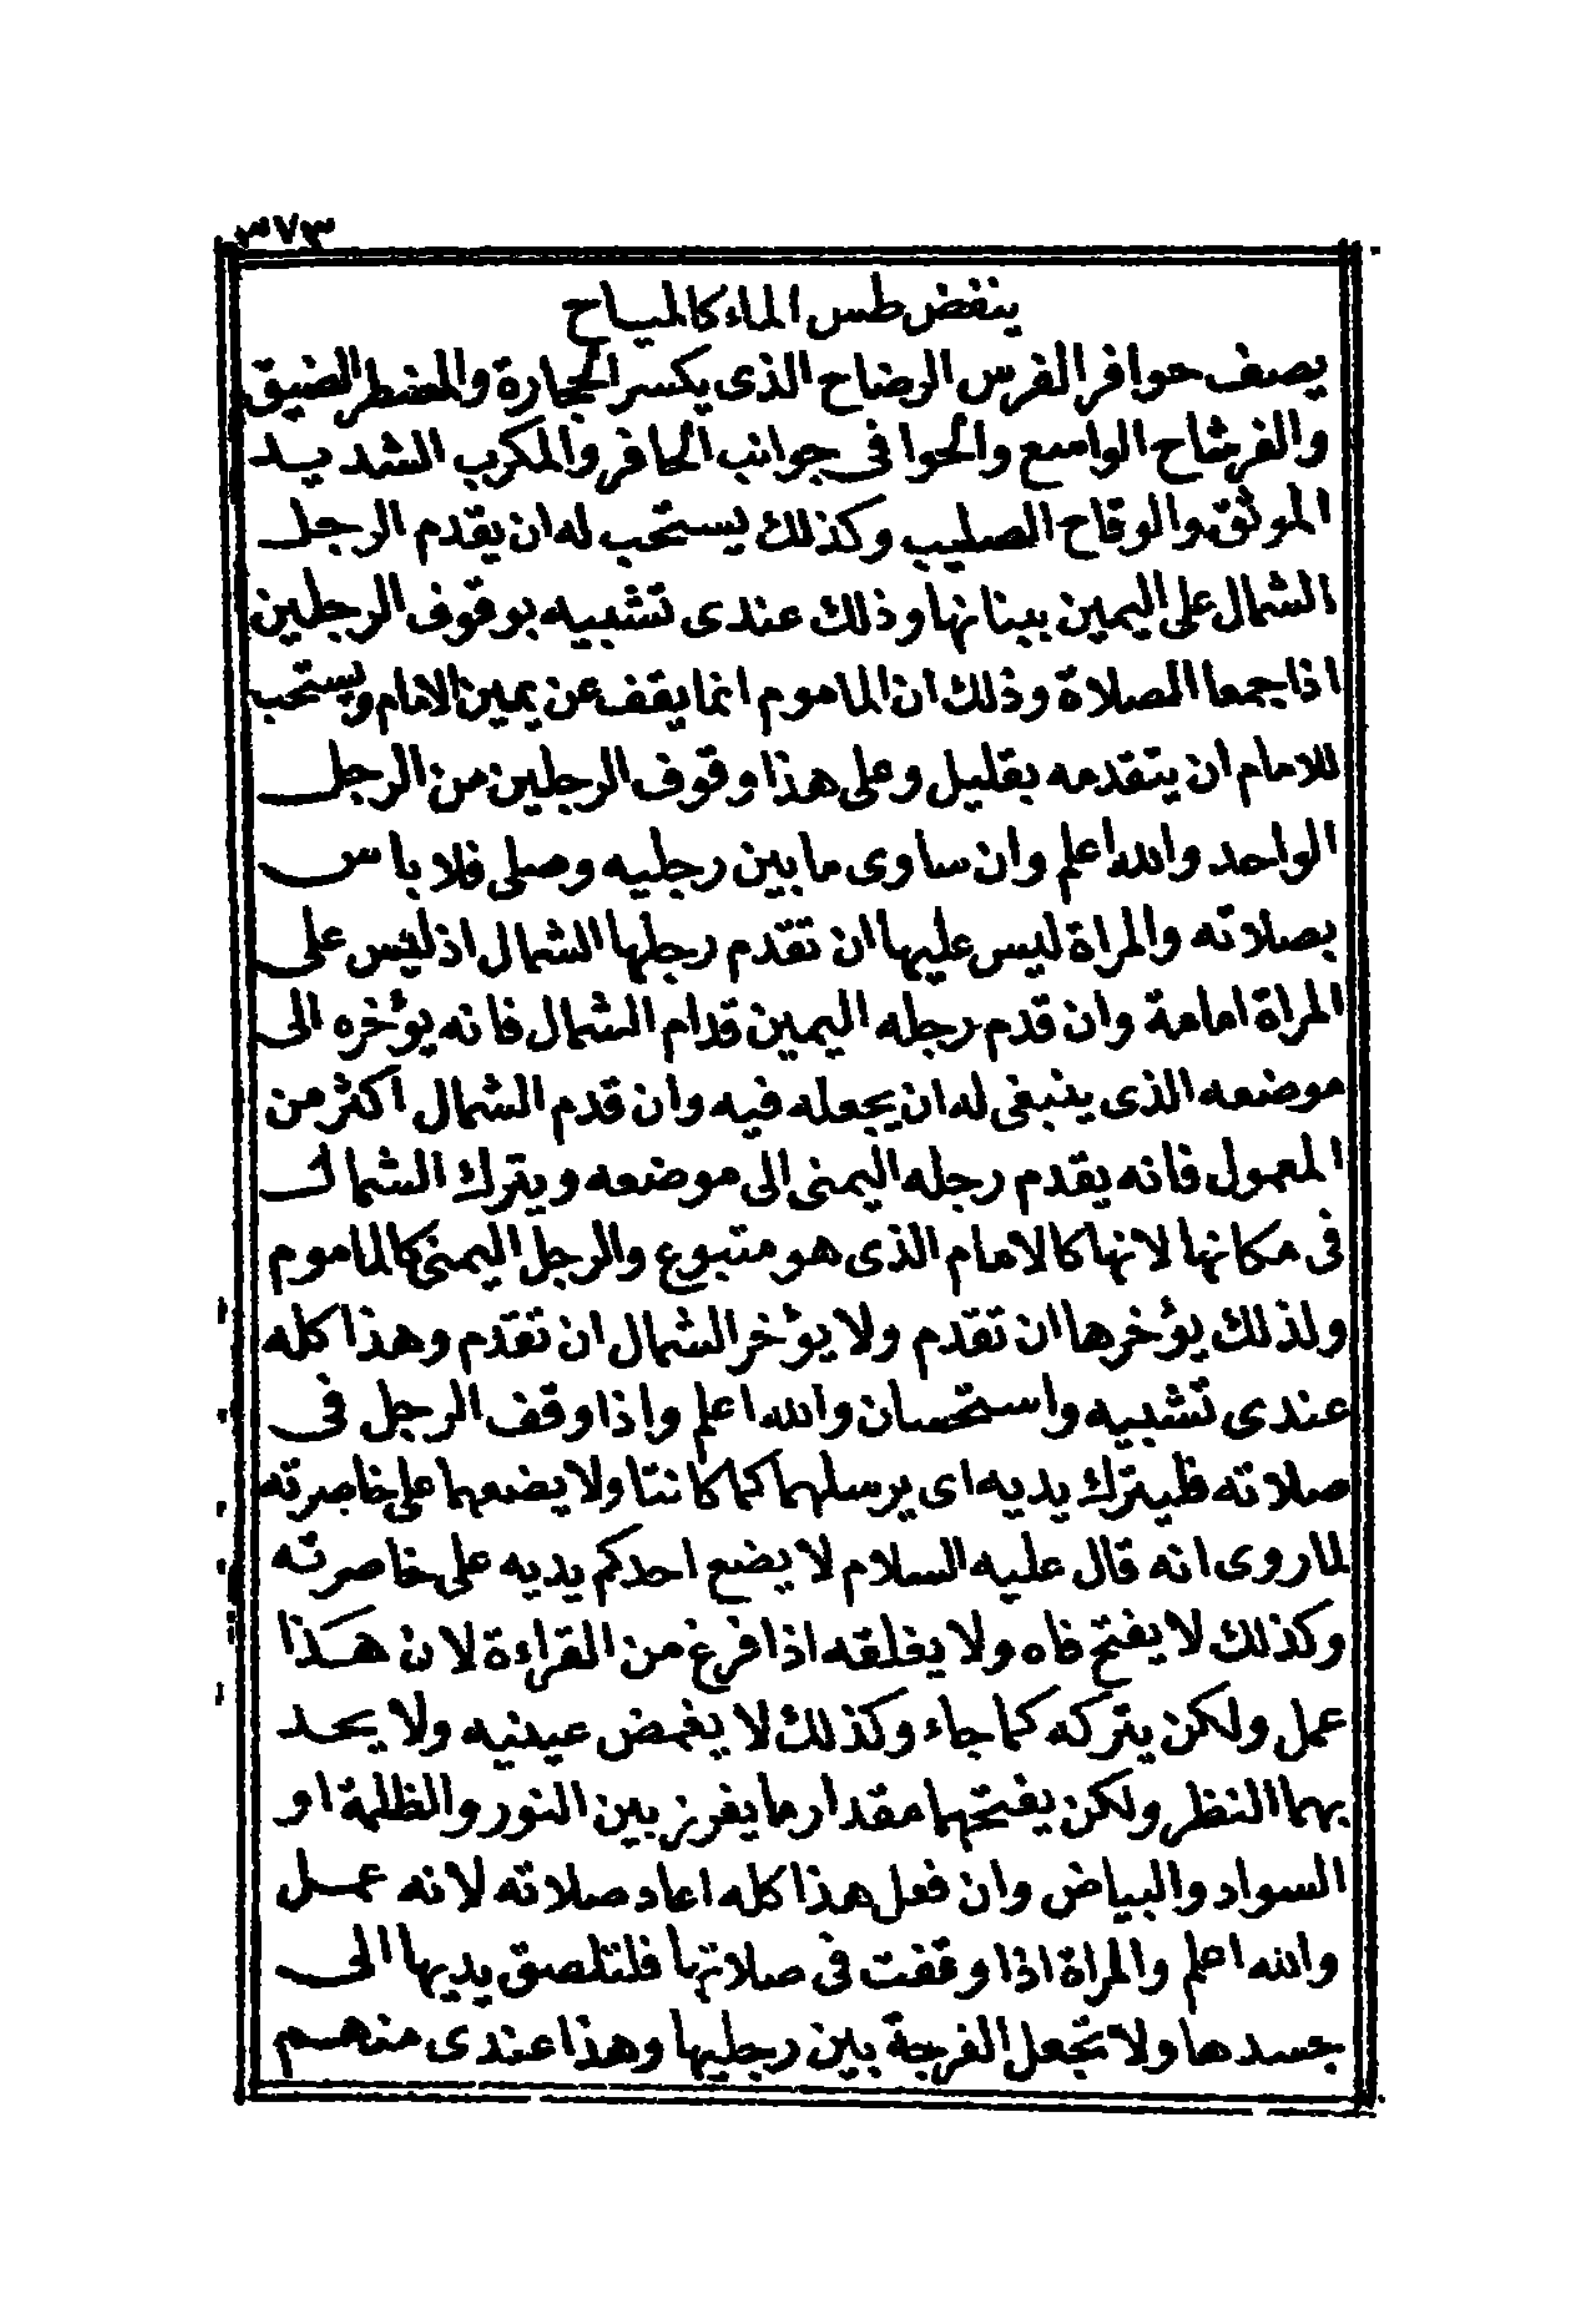 ٣٧٣
ينفض طس الماء كالمياح
يصف حوافر الفرس الرضاح الذى يكسر الحجارة والمضطر الضيق
والفرشاح الواسع والحوافى جوانب الحافر والمكرب الشديد
الموثق والوقاح الصليب وكذلك يستحب له ان يقدم الرجل
الشمال على اليمين ببنانها وذلك عندى تشبيه بوقوف الرجلين
اذا جمعا الصلاة وذلك ان الماموم انما يقف عن يمين الامام ويستحب
للامام ان يتقدمه بقليل وعلى هذا وقوف الرجلين من الرجل
الواحد والله اعلم وان ساوى ما بين رجليه وصلى فلا باس
بصلاته والمراة ليس عليها ان تقدم رجلها الشمال اذ ليس على
المراة امامة وان قدم رجله اليمين قدام الشمال فانه يؤخره الى
موضعه الذى ينبغى له ان يجعله فيه وان قدم الشمال اكثر من
المعمول فانه يقدم رجله اليمنى الى موضعه ويترك الشمال
فى مكانها لانها كالامام الذى هو متبوع والرجل اليمنى كالماموم
ولذلك يؤخرها ان تقدم ولا يؤخر الشمال ان تقدم وهذا كله
عندى تشبيه واستحسان والله اعلم واذا وقف الرجل فى
صلاته فليترك يديه اى يرسلهما كما كانتا ولا يضعهما على خاصرته
لما روى انه قال عليه السلام لا يضع احدكم يديه على خاصرته
وكذلك لا يفتح فاه ولا يغلقه اذا فرغ من القراءة لان هذا
عمل ولكن يتركه كما جاء وكذلك لا يغمض عينيه ولا يحد
بهما النظر ولكن يفتحهما مقدار ما يفرز بين النور والظلمة او
السواد والبياض وان فعل هذا كله اعاد صلاته لانه عمل
والله اعلم والمراة اذا وقفت فى صلاتها فلتلصق يديها الى
جسدها ولا تجعل الفرجة بين رجليها وهذا عندى منهم